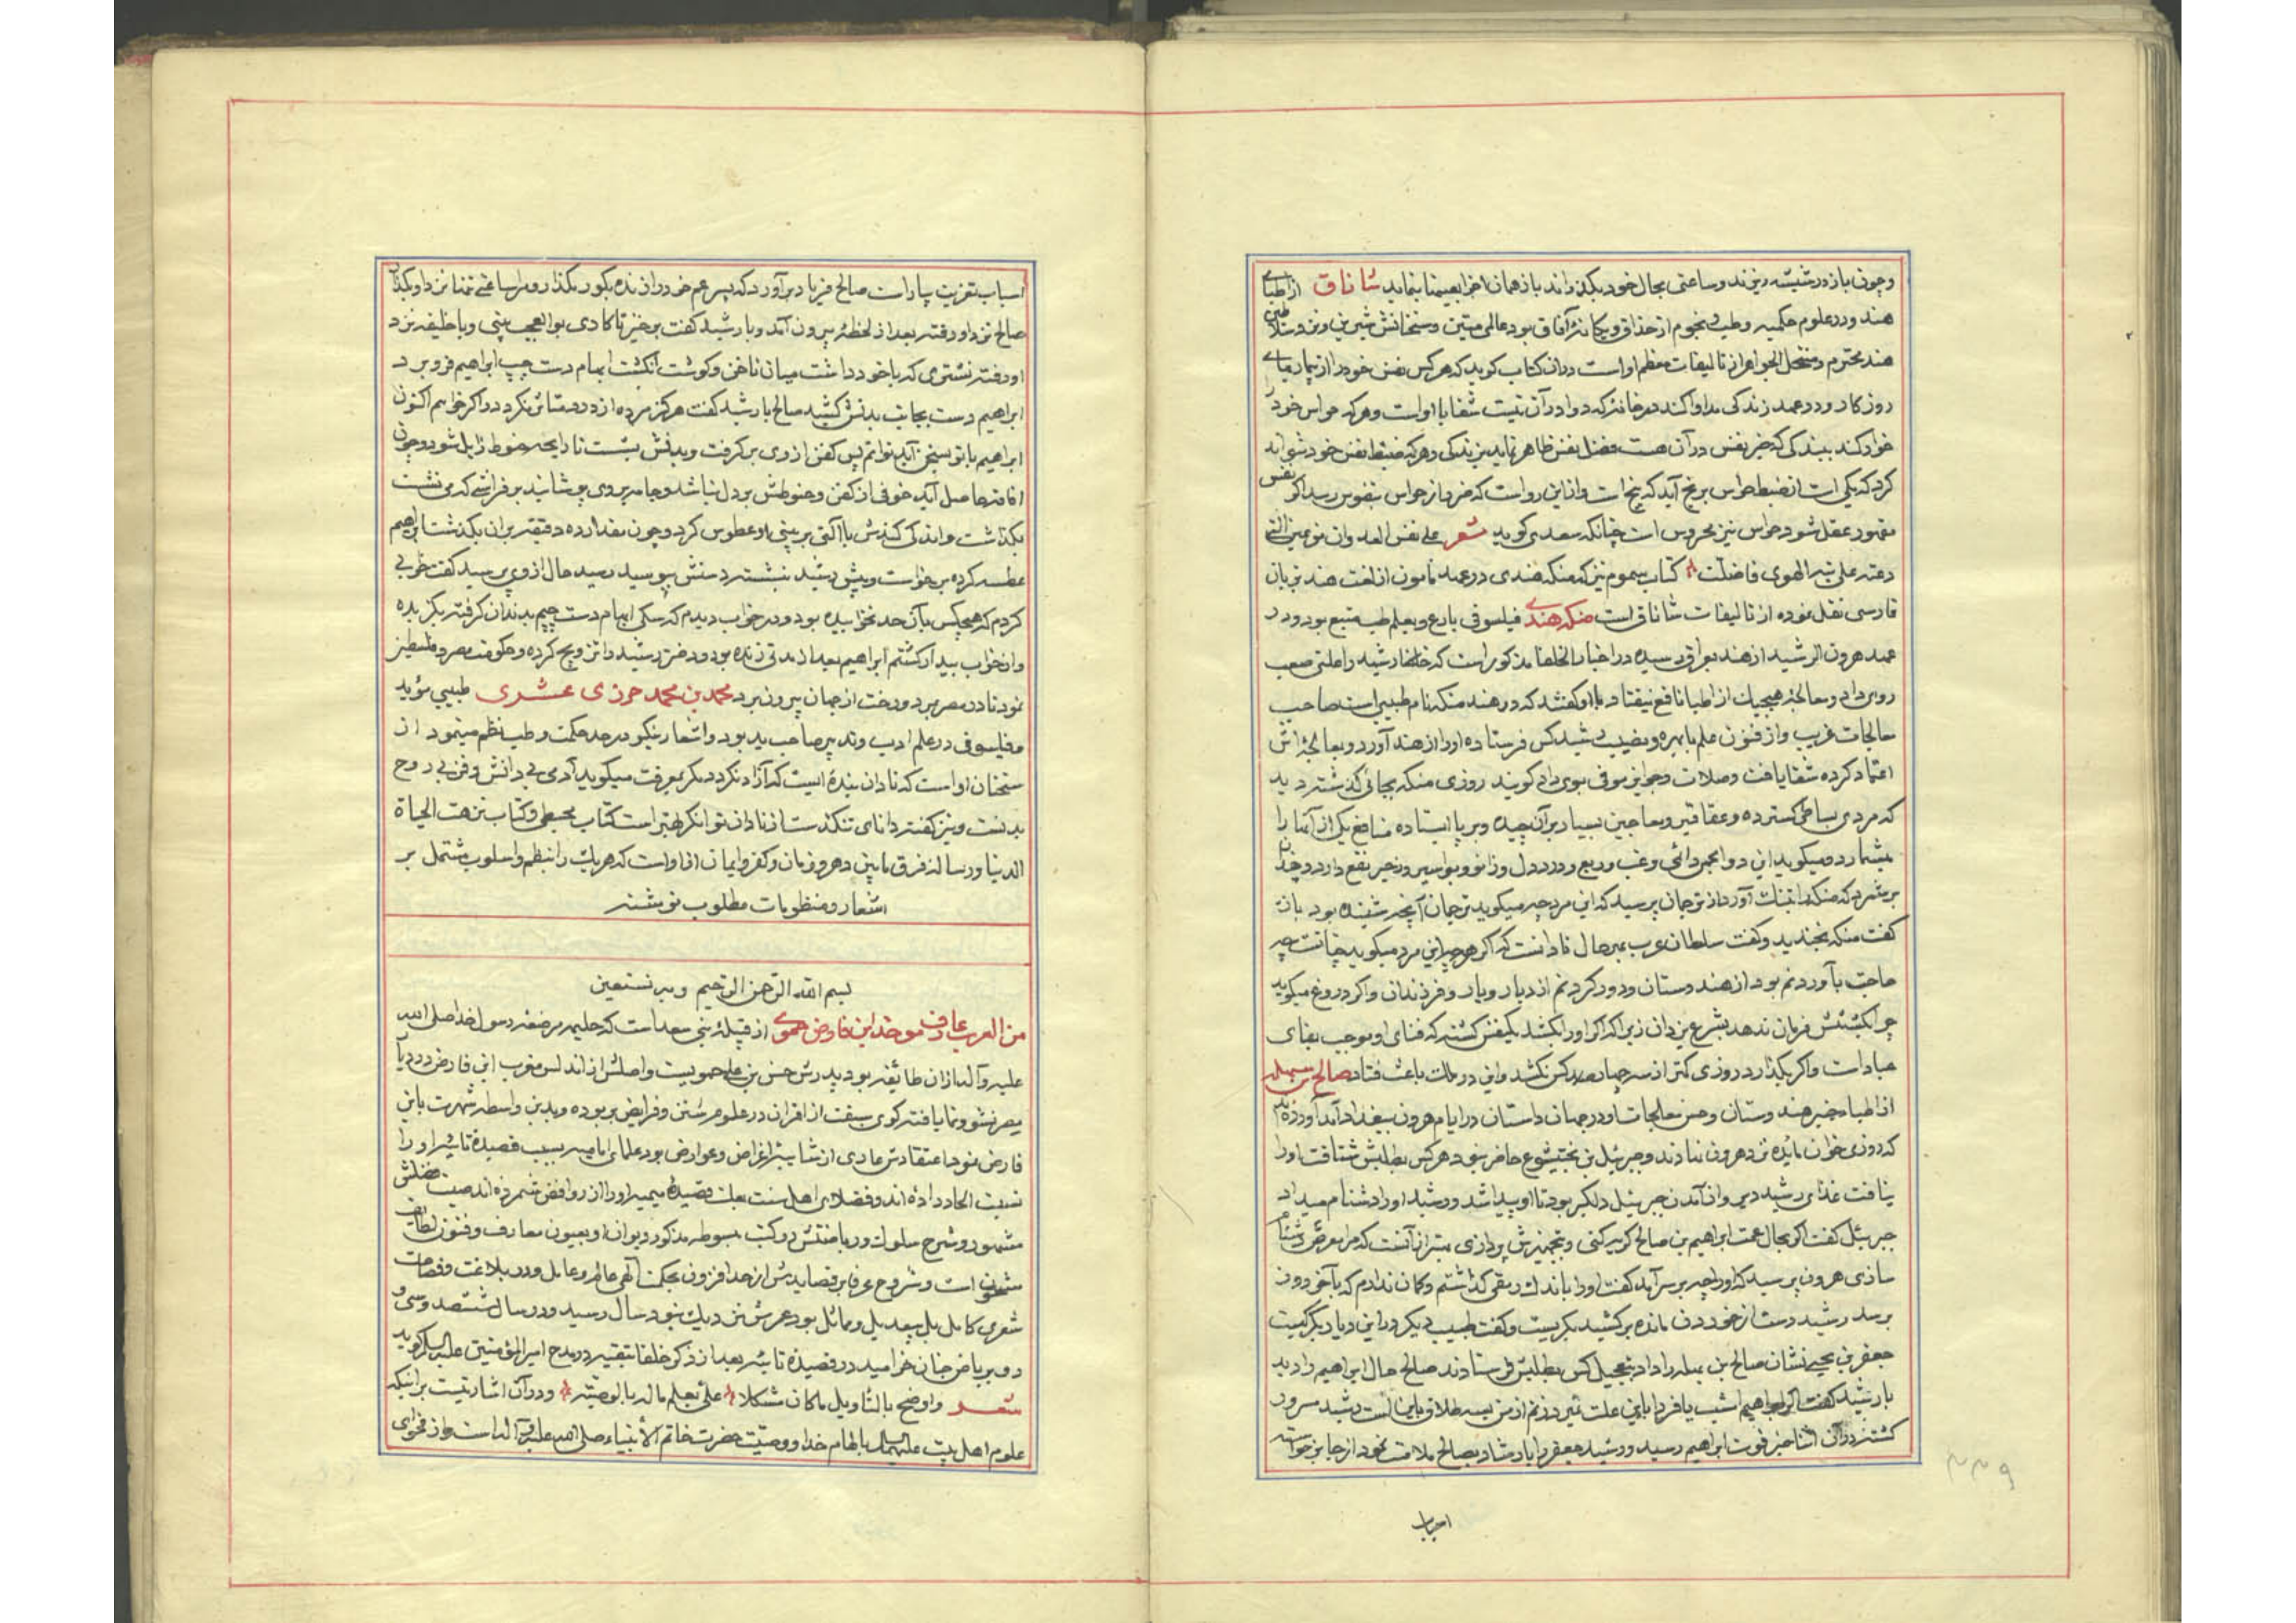 وچون باز در شیشه ریزند و ساعتی بحال خود بگذراند باز همان اجزا بعینها بنماید شاناق از اطبای
هند و در علوم حکمیه و طب و نجوم از حذاق و یکانهٔ آفاق بود عالمی متین و سخنانش شیرین و نزد سلاطین
هند محترم و منتحل الجواهر از تالیفات معظم او است در ان کتاب کوید که هر کس نفس خود را از بیماریهای
روزکار و در عهد زندکی مداوا کند در خانهٔ که دوا در آن نیست شفا با او است و هر که حواس خود را
خوار کند ببندکی که خیر نفس در آن هست فضل نفس ظاهر نماید بزندکی و هر که ضبط نفس خود نتواند
کرد که یکی است از ضبط حواس برنج آید که پنج است و از این رو است که ضرر از حواس بنفوس رسد اکر نفس
مقهور عقل شود حواس نیز محروس است چنانکه سعدی کوید شعر علی نفس العدوان
دعته علی تیه الهوی فاضلت کتاب سموم نیز که منکه هندی در عهد مامون از لغت هند بزبان
فارسی نقل نموده از تالیفات شاناق است منکه هندی فیلسوفی بارع و بعلم طب متتبع بود و در
عهد هرون الرشید از هند بعراق رسیده در اخبار الخلفا مذکور است که خلیفه رشید را علتی صعب
روی داد و معالجهٔ هیچیک از اطبا نافع نیفتاد با او کفتند که در هند منکه نام طبیبی است صاحب
معالجات غریب و از فنون علم با بهره و نصیب رشید کس فرستاده او را از هند آورد و بمعالجهٔ اش
اعتماد کرده شفا یافت و صلات و جوایز موفی بوی داد کویند روزی منکه بجائی کذشته دید
که مردی بساطی کسترده و عقاقیر و معاجین بسیار بر آن چیده و بر پا ایستاده منافع یک از آنها را
میشمارد و میکوید این دوا بحمی دائمی و غب و ربع و درد دل و زانو و بواسیر و زحیر نفع دارد و چندان
بر شمرد که منکه را بتنک آورد از ترجمان پرسید که این مرد چه میکوید ترجمان آنچه شنیده بود باز
کفت منکه بخندید و کفت سلطان عرب بهر حال نادانست که اکر هر چه این مرد میکوید چنانست چه
حاجت بآوردنم بود از هندوستان و دور کردنم از دیار و یار و فرزندان و اکر دروغ میکوید
چرا بکشتنش فرمان ندهد بشرع یزدان زیرا که اکر او را بکشد یکنفس کشته که فنای او موجب بقای
عباد است و اکر بکذارد روزی کمتر از سه چهار صد کس نکشد و این در ملت باعث فتاد صالح بن بهله
از اطباء خبیر هندوستان و حسن معالجات او در جهان داستان در ایام هرون ببغداد آمد آورده اند
که روزی خوان مایده نزد هرون نهادند و جبرئیل بن بختیشوع حاضر نبود هر کس بطلبش شتافت او را
نیافت غذای رشید دیر و از آمدن جبرئیل دلکیر بود تا او پیدا شد و رشید او را دشنام میداد
جبرئیل کفت اکر بحال عمت ابراهیم بن صالح کریه کنی و بتجهیزش پردازی بهتر از آنست که مرا معرض دشنام
سازی هرون پرسید که او را چه بر سر آمد کفت او را باندک رمقی کذاشتم و کمان ندارم که بآخر روز
برسد رشید دست از خوردن مانده برکشید بکریست و کفت طبیب دیکر در این دیار دیکر کیست
جعفر بن یحیی نشان صالح بن بهله را داد بتعجیل کس بطلبش فرستادند صالح حال ابراهیم را دید
با رشید کفت اکر ابراهیم امشب یا فردا باین علت میرد زنم از من بسه طلاق باین است رشید مسرور
کشته در آن اثنا خبر فوت ابراهیم رسید و رشید جعفر را بارشاد بصالح ملامت نمود از جا برخواسته
اسباب
۴۳۹
اسباب تعزیت بیاراست صالح فریاد برآورد که پسر عم خود را زنده بکور مکذار و مرا ساعتی تنها نزد او بکذار
صالح نزد او رفته بعد از لحظهٔ بیرون آمد و با رشید کفت برخیز تا کاری بوالعجب بینی و با خلیفه نزد
او رفته نشتری که با خود داشت میان ناخن و کوشت انکشت ابهام دست چپ ابراهیم فرو برد
ابراهیم دست بجانب بدنش کشید صالح با رشید کفت هرکز مرده از درد متاثر نکردد و اکر خواهم اکنون
ابراهیم با تو بسخن آید توانم پس کفن از وی برکرفت و بدنش بشست تا رایحه حنوط زایل شود و چون
افاقه حاصل آید خوفی از کفن و حنوطش بر دل نباشد و جامه بر وی پوشانید بر فراشی که می نشست
بکذاشت و اندکی کندش با آلتی بر بینی او عطوس کرد و چون مقدار ده دقیقه بر ان بکذشت ابراهیم
عطسه کرده برخواست و پیش رشید نشسته دستش بوسید رشید حال از وی پرسید کفت خوابی
کردم که هیچکس بآن حد نخوابیده بود و در خواب دیدم که سکی ابهام دست چپم بدندان کرفته بکزیده
و از خواب بیدار کشتم ابراهیم بعد از مدتی زنده بود و دختر رشید را تزویج کرده و حکومت مصر و فلسطین
نمود تا در مصر بمرد و رخت از جهان بیرون برد محمد بن محمد حرزی عشری طبیبی مؤید
و فیلسوفی در علم ادب و تدبیر صاحب ید بود و اشعار نیکو در حد حکمت و طب نظم مینمود از
سخنان او است که نادان بندهٔ ایست که آزاد نکردد مکر بمعرفت میکوید آدمی بی دانش و فن بی روح
بدنست و نیز کفته دانای تنکدست از نادان توانکر بهتر است کتاب محیطی و کتاب نزهت الحیاة
الدنیا و رسالهٔ فرق ما بین دهر و زمان و کفر و ایمان از او است که هر یک را بنظم و اسلوب مشتمل بر
اشعار و منظومات مطلوب نوشته
بسم الله الرحمن الرحیم و به نستعین
من العرب عارف موحد ابن فارض حموی از قبیلهٔ بنی سعد است که حلیمه مرضعه رسول خدا صلی الله
علیه و آله از ان طایفه بود پدرش حسن بن علی حمویست و اصلش از اندلس مغرب ابن فارض در دیار
مصر نشو و نما یافته کوی سبقت از اقران در علوم سنن و فرایض ربوده و بدین واسطه شهرت بابن
فارض نمود اعتقادش عاری از شایبهٔ اغراض و عوارض بود علمای امامیه بسبب قصیدهٔ تائیه او را
نسبت الحاد داده اند و فضلای اهل سنت بعلت قصیدهٔ میمیه او را از روافض شمرده اند صیت فضلش
مشهور و شرح سلوک و ریاضتش در کتب مبسوطه مذکور دیوان او بعیون معارف و فنون لطائف
مشحون است و شروح عرفا بر قصایدش از حد افزون بحکمت الهی عالم و عامل و در بلاغت و فصاحت
شعری کامل بل بیعدیل و مماثل بود عمرش نزدیک بنود سال رسید و در سال ششصد و سی و
دو بریاض جنان خرامید در قصیدهٔ تائیه بعد از ذکر خلفا بتقیه در مدح امیر المؤمنین علیه السلام کوید
شعر واوضح بالتاویل ما کان مشکلا علی بعلم ناله بالوصیة و در آن اشارتیست بر اینکه
علوم اهل بیت علیهم السلام بالهام خدا و وصیت حضرت خاتم الأنبیاء صلی الله علیه و آله است و از فحوای